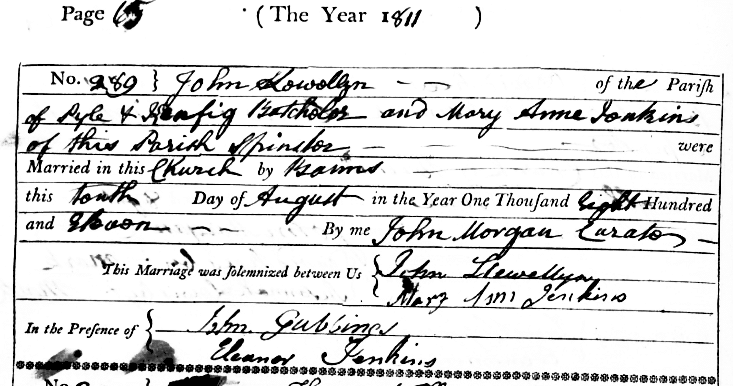 Page 65 ( The Year 1811 )
No. 289 } John Lewellyn of the Parish
of Pyle & Kenfig Batchelor and Mary Anne Jenkins
of this Parish Spinster were
Married in this Church by Banns
this tenth Day of August in the Year One Thousand Eight Hundred
and Eleven By me John Morgan Curate
This Marriage was solemnized between Us { John Llewellyn
Mary Ann Jenkins
In the Presence of { John Gubbings
Eleanor Jenkins
No.